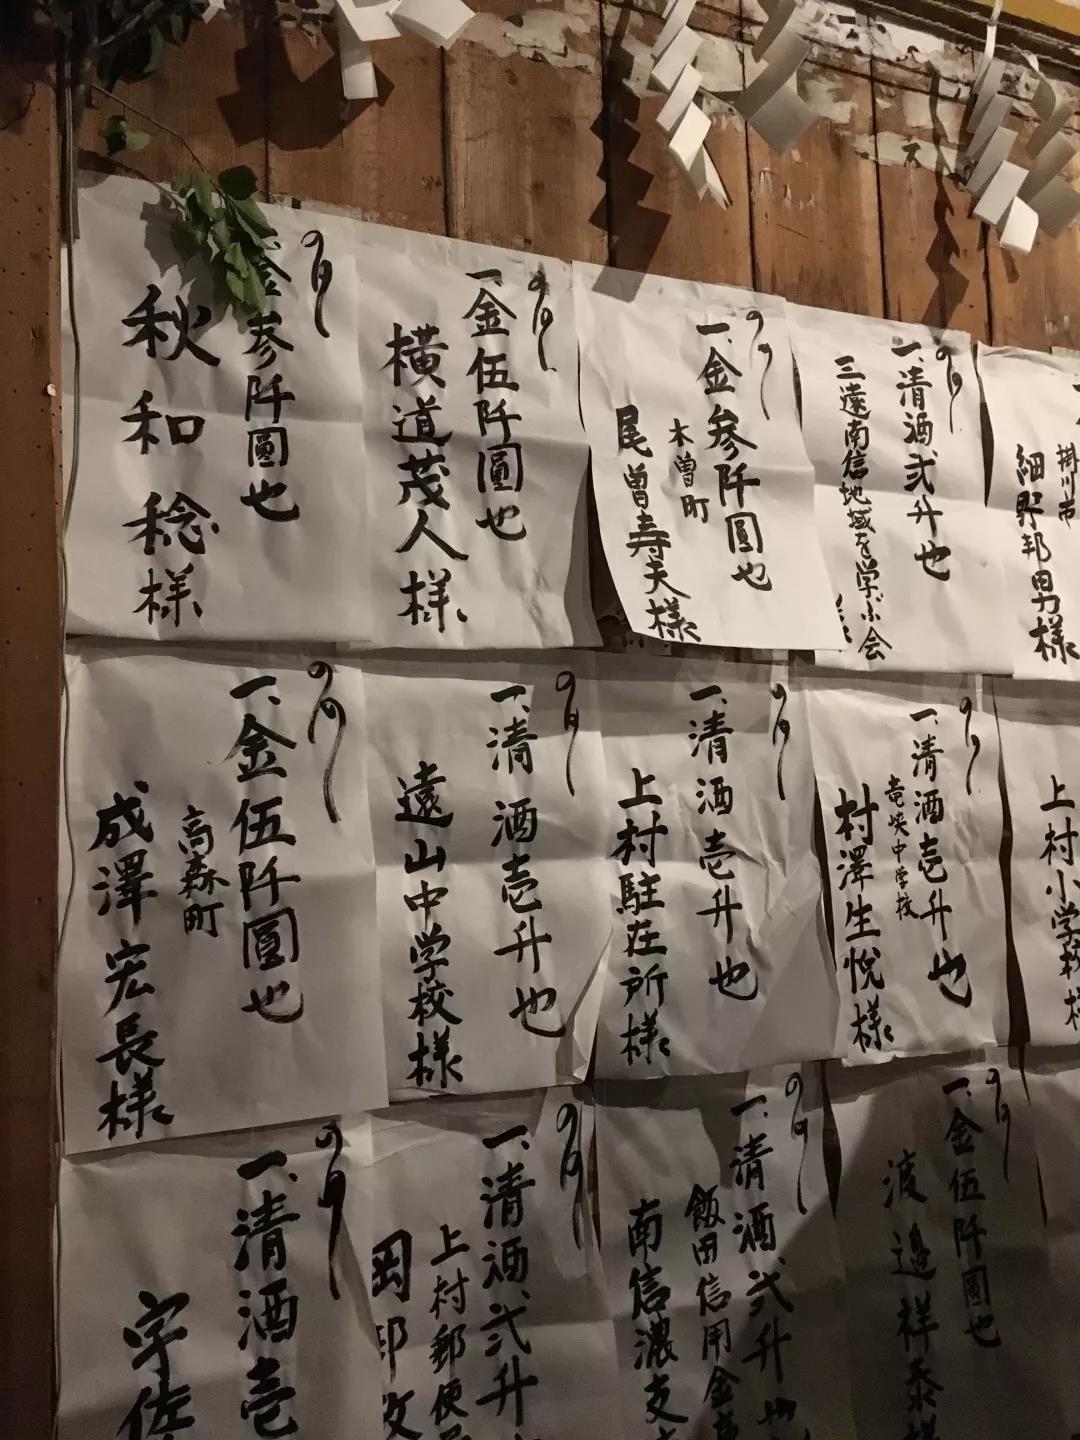 一、金参阡圓也
秋和稔様
一、金伍阡圓也
横道茂人様
一、金参阡圓也
木曽町
尾曽寿夫様
一、清酒弐升也
三遠南信地域を学ぶ会
様
掛川市
細野邦男様
一、金伍阡圓也
高森町
成澤宏長様
一、清酒壱升也
遠山中学校様
一、清酒壱升也
上村駐在所様
一、清酒壱升也
竜峡中学校
村澤生悦様
上村小学校様
一、清酒壱
宇佐
一、清酒弐升
上村郵便
岡
一、清酒弐升也
飯田信用金
南信濃支
一、金伍阡圓也
渡邉祥泰様